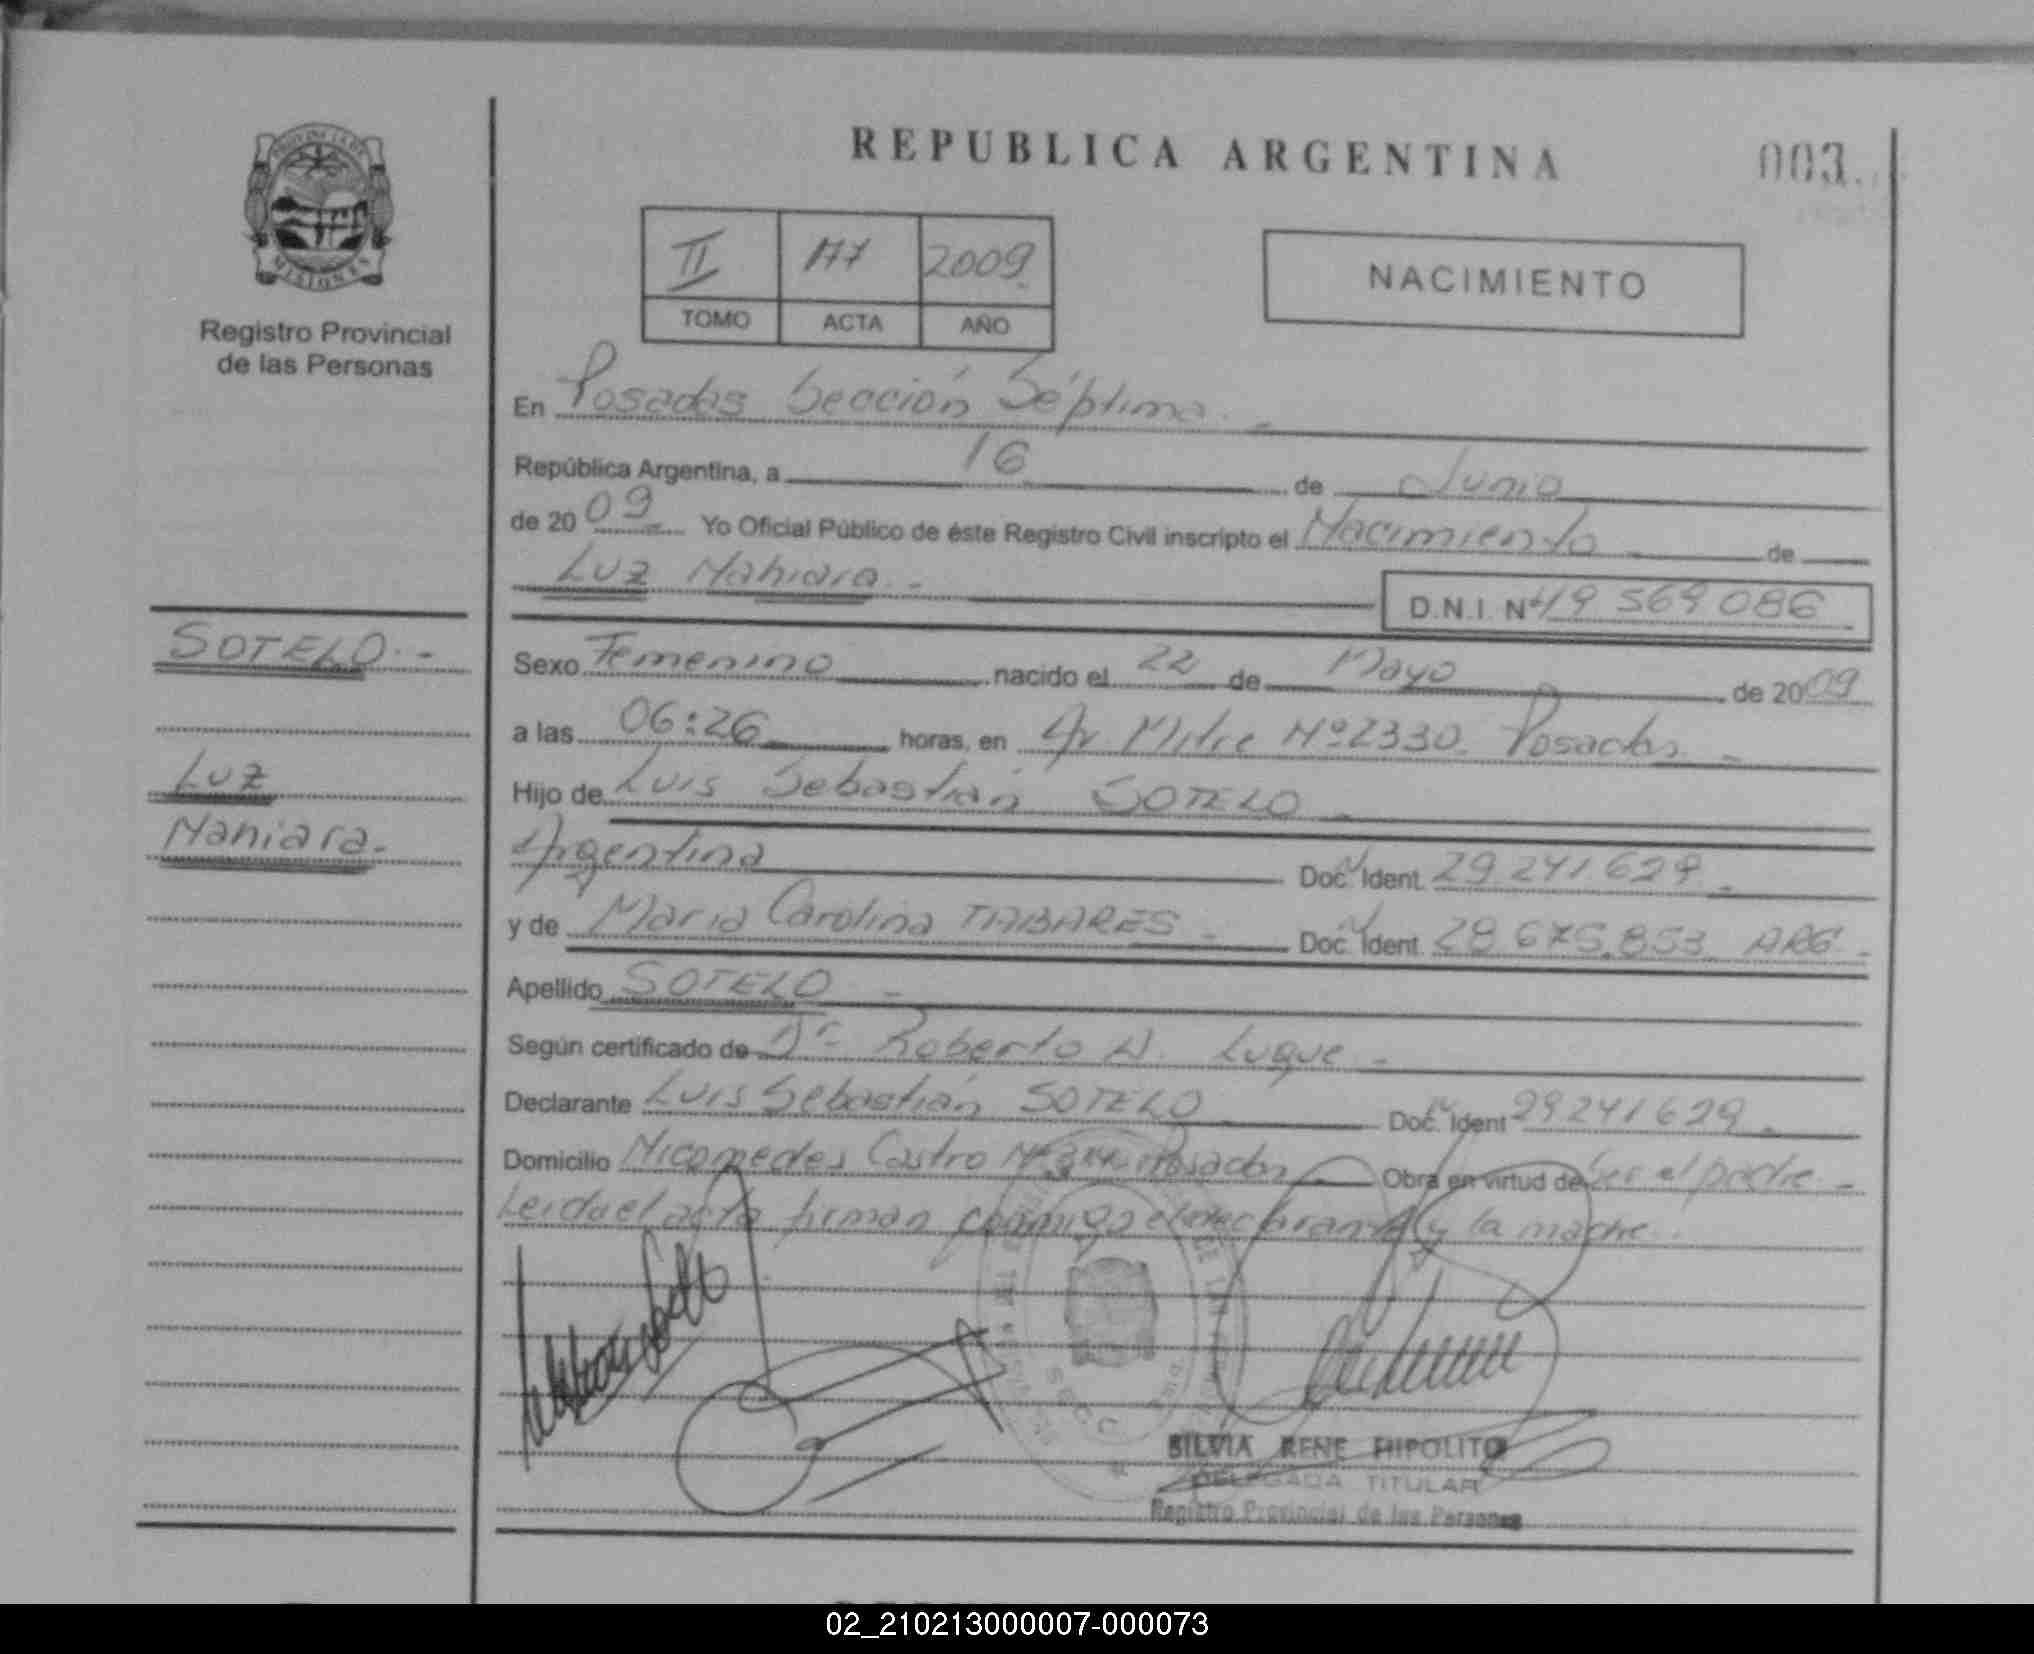 REPUBLICA ARGENTINA
003
PROVINCIA DE
MISIONES
Registro Provincial
de las Personas
II 177 2009
TOMO ACTA AÑO
NACIMIENTO
En Posadas Sección Séptima.-
República Argentina, a 16 de Junio
de 2009 Yo Oficial Público de éste Registro Civil inscripto el Nacimiento de
Luz Nahiara.-
D.N.I. Nº 49 569 086
SOTELO.-
Luz
Nahiara.-
Sexo Femenino nacido el 22 de Mayo de 2009
a las 06:26 horas, en Av. Mitre Nº 2330 Posadas -
Hijo de Luis Sebastián SOTELO
Argentina Doc. Ident. 29 241 629 -
y de Maria Carolina TABARES - Doc. Ident. 28 675.853 ARG -
Apellido SOTELO -
Según certificado de Dr. Roberto Luque -
Declarante Luis Sebastián SOTELO Doc. Ident 29 241 629 -
Domicilio Nicomedes Castro Posadas Obra en virtud de ser el padre -
Leida el acta firman conmigo el declarante y la madre.
SILVIA RENE HIPOLITO
DELEGADA TITULAR
Registro Provincial de las Personas
02_210213000007-000073